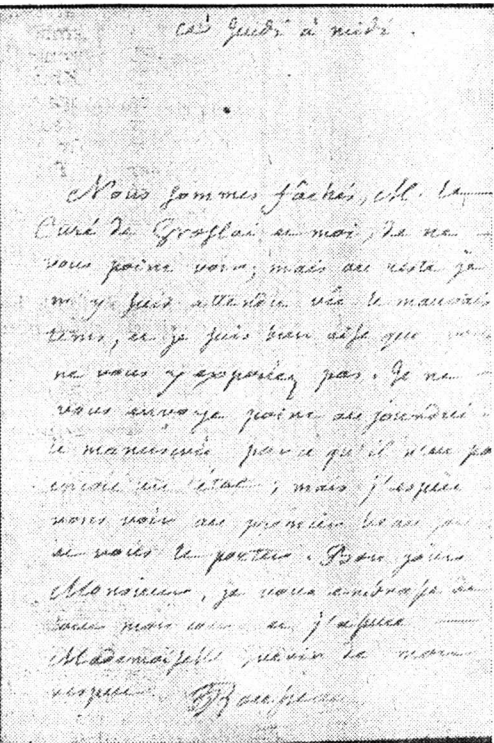 ce Jeudi à midi.
Nous sommes fâchés, M. le
Curé de Groslai et moi, de ne
vous point voir; mais au reste je
m'y suis attendu vû le mauvais
tems, et je suis bien aise que vous
ne vous y exposiez pas. Je ne
vous envoye point aujourdui
le manuscrit parce qu'il n'est pas
encore en état; mais j'espére
vous voir au premier beau
et vous le porter. Bon jour
Monsieur, je vous embrasse de
tout mon coeur et j'assure
Mademoiselle de mon
respect. JJRousseau